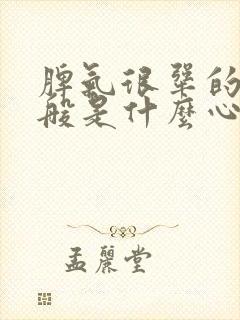 脾氣很犟的
般是什麼心
孟麗堂